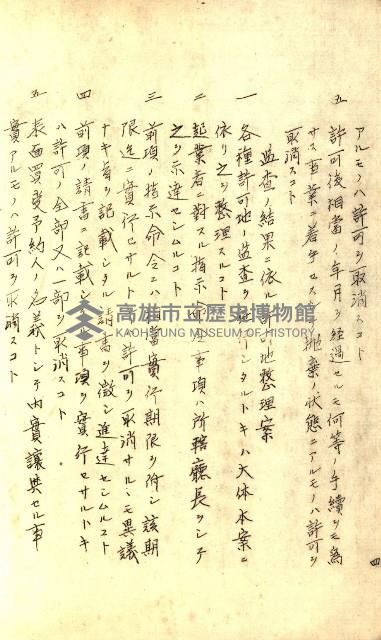 アルモノハ許可ヲ取消スコト
五 許可後相當ノ年月ヲ經過セルモ何等ノ手續ヲモ爲
サス事業ニ着手セス 抛棄ノ狀態ニアルモノハ許可ヲ
取消スコト
監査ノ結果ニ依ル 地整理案
一 各種許可地ノ監査ヲ 行シタルトキハ大体本案ニ
依リ之ヲ整理スルコト
二 起業者ニ對スル指示命令事項ハ所轄廳長ヲシテ
之ヲ示達セシムルコト
三 前項ノ指示命令ニハ相當實行期限ヲ附シ該期
限迄ニ實行セサルトキハ許可ヲ取消サルルモ異議
ナキ旨ヲ記載シタル請書ヲ徵シ進達セシムルコト
四 前項ノ請書ニ記載シタル事項ヲ實行セサルトキ
ハ許可ノ全部又ハ一部ヲ取消スコト
五 表面買受予約人ノ名義トシテ內實讓與セル事
實アルモノハ許可ヲ取消スコト
四
高雄市立歷史博物館
KAOHSIUNG MUSEUM OF HISTORY